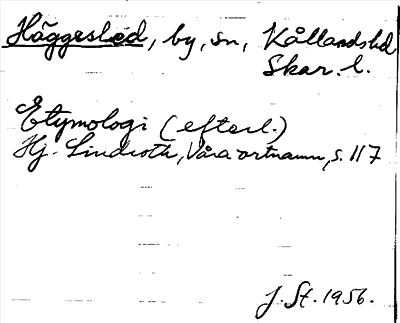 Häggesled, by, sn, Kållandshd
Skar. l.
Etymologi (efterl.)
Hj. Lindroth, Våra ortnamn, s. 117
J. St. 1956.